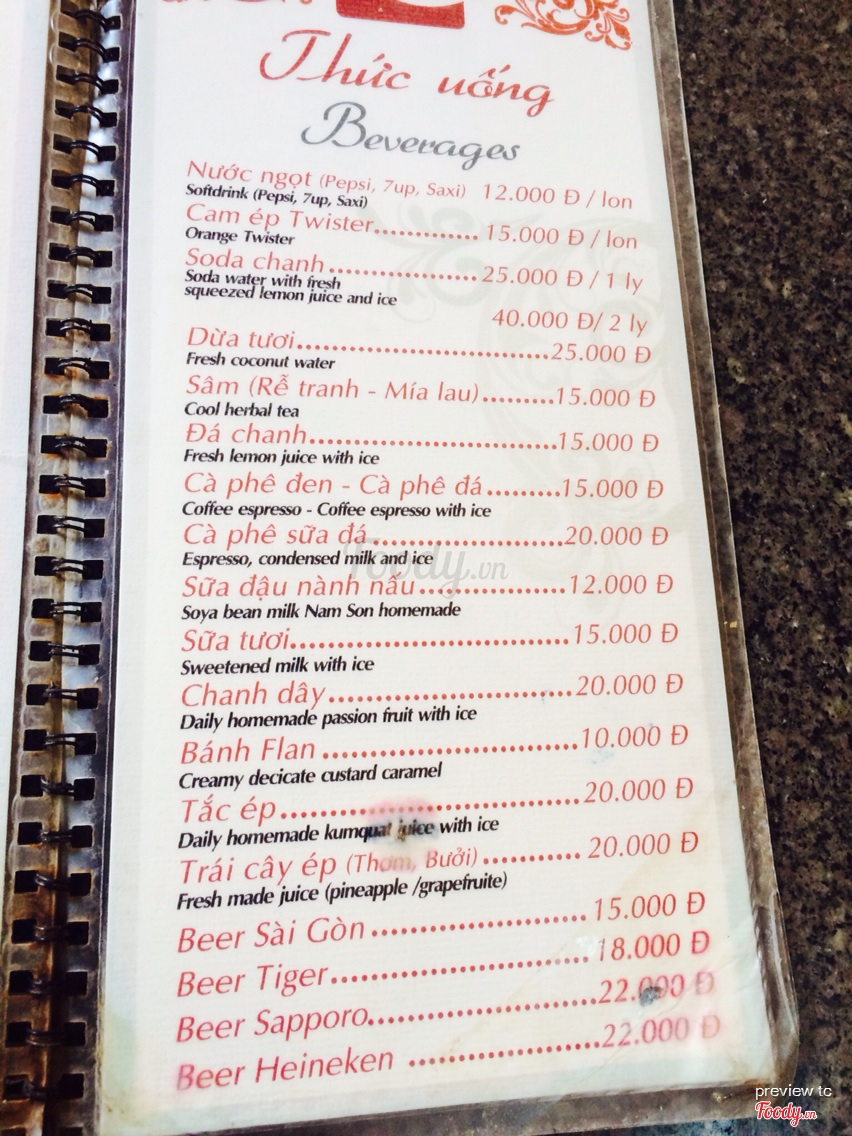 Thức uống
Beverages
Nước ngọt (Pepsi, 7up, Saxi) 12.000 Đ / lon
Softdrink (Pepsi, 7up, Saxi)
Cam ép Twister............ 15.000 Đ / lon
Orange Twister
Soda chanh.................25.000 Đ / 1 ly
Soda water with fresh
squeezed lemon juice and ice
40.000 Đ/ 2 ly
Dừa tươi.............................25.000 Đ
Fresh coconut water
Sâm (Rễ tranh - Mía lau).........15.000 Đ
Cool herbal tea
Đá chanh.............................15.000 Đ
Fresh lemon juice with ice
Cà phê đen - Cà phê đá.........15.000 Đ
Coffee espresso - Coffee espresso with ice
Cà phê sữa đá......................20.000 Đ
Espresso, condensed milk and ice
Foody.vn
Sữa đậu nành nấu.................12.000 Đ
Soya bean milk Nam Son homemade
Sữa tươi...............................15.000 Đ
Sweetened milk with ice
Chanh dây...........................20.000 Đ
Daily homemade passion fruit with ice
Bánh Flan ............................10.000 Đ
Creamy decicate custard caramel
Tắc ép.................................20.000 Đ
Daily homemade kumquat juice with ice
Trái cây ép (Thơm, Bưởi) .......... 20.000 Đ
Fresh made juice (pineapple /grapefruite)
Beer Sài Gòn ...................... 15.000 Đ
Beer Tiger...........................18.000 Đ
Beer Sapporo.......................22.000 Đ
Beer Heineken ....................22.000 Đ
preview tc
Foody.vn